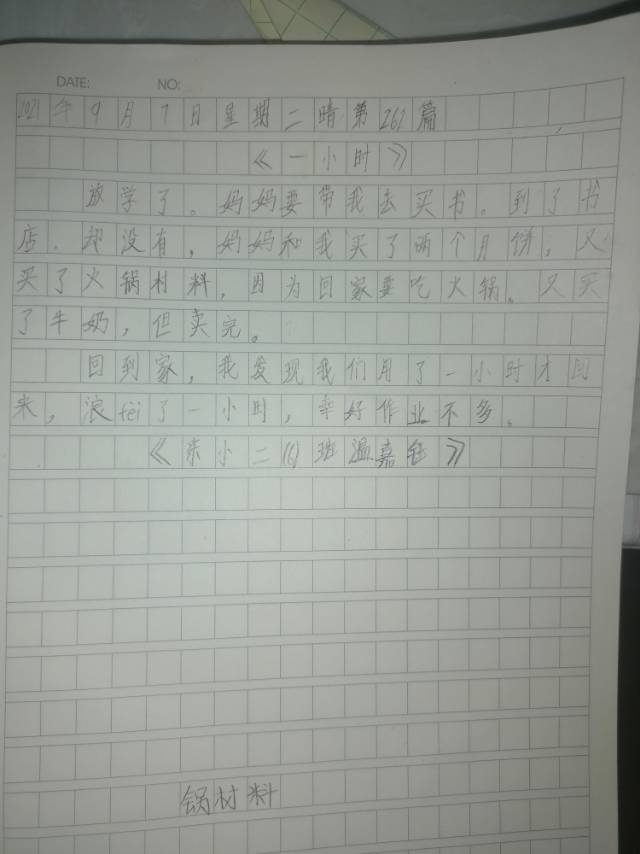 DATE: NO:
2021年9月7日星期二晴第262篇
《一小时》
放学了。妈妈要带我去买书。到了书
店,却没有,妈妈和我买了两个月饼,又
买了火锅材料,因为回家要吃火锅。又买
了牛奶,但卖完。
回到家,我发现我们用了一小时才回
来,浪fèi了一小时,幸好作业不多。
《东小二(6)班温嘉钰》
锅材料